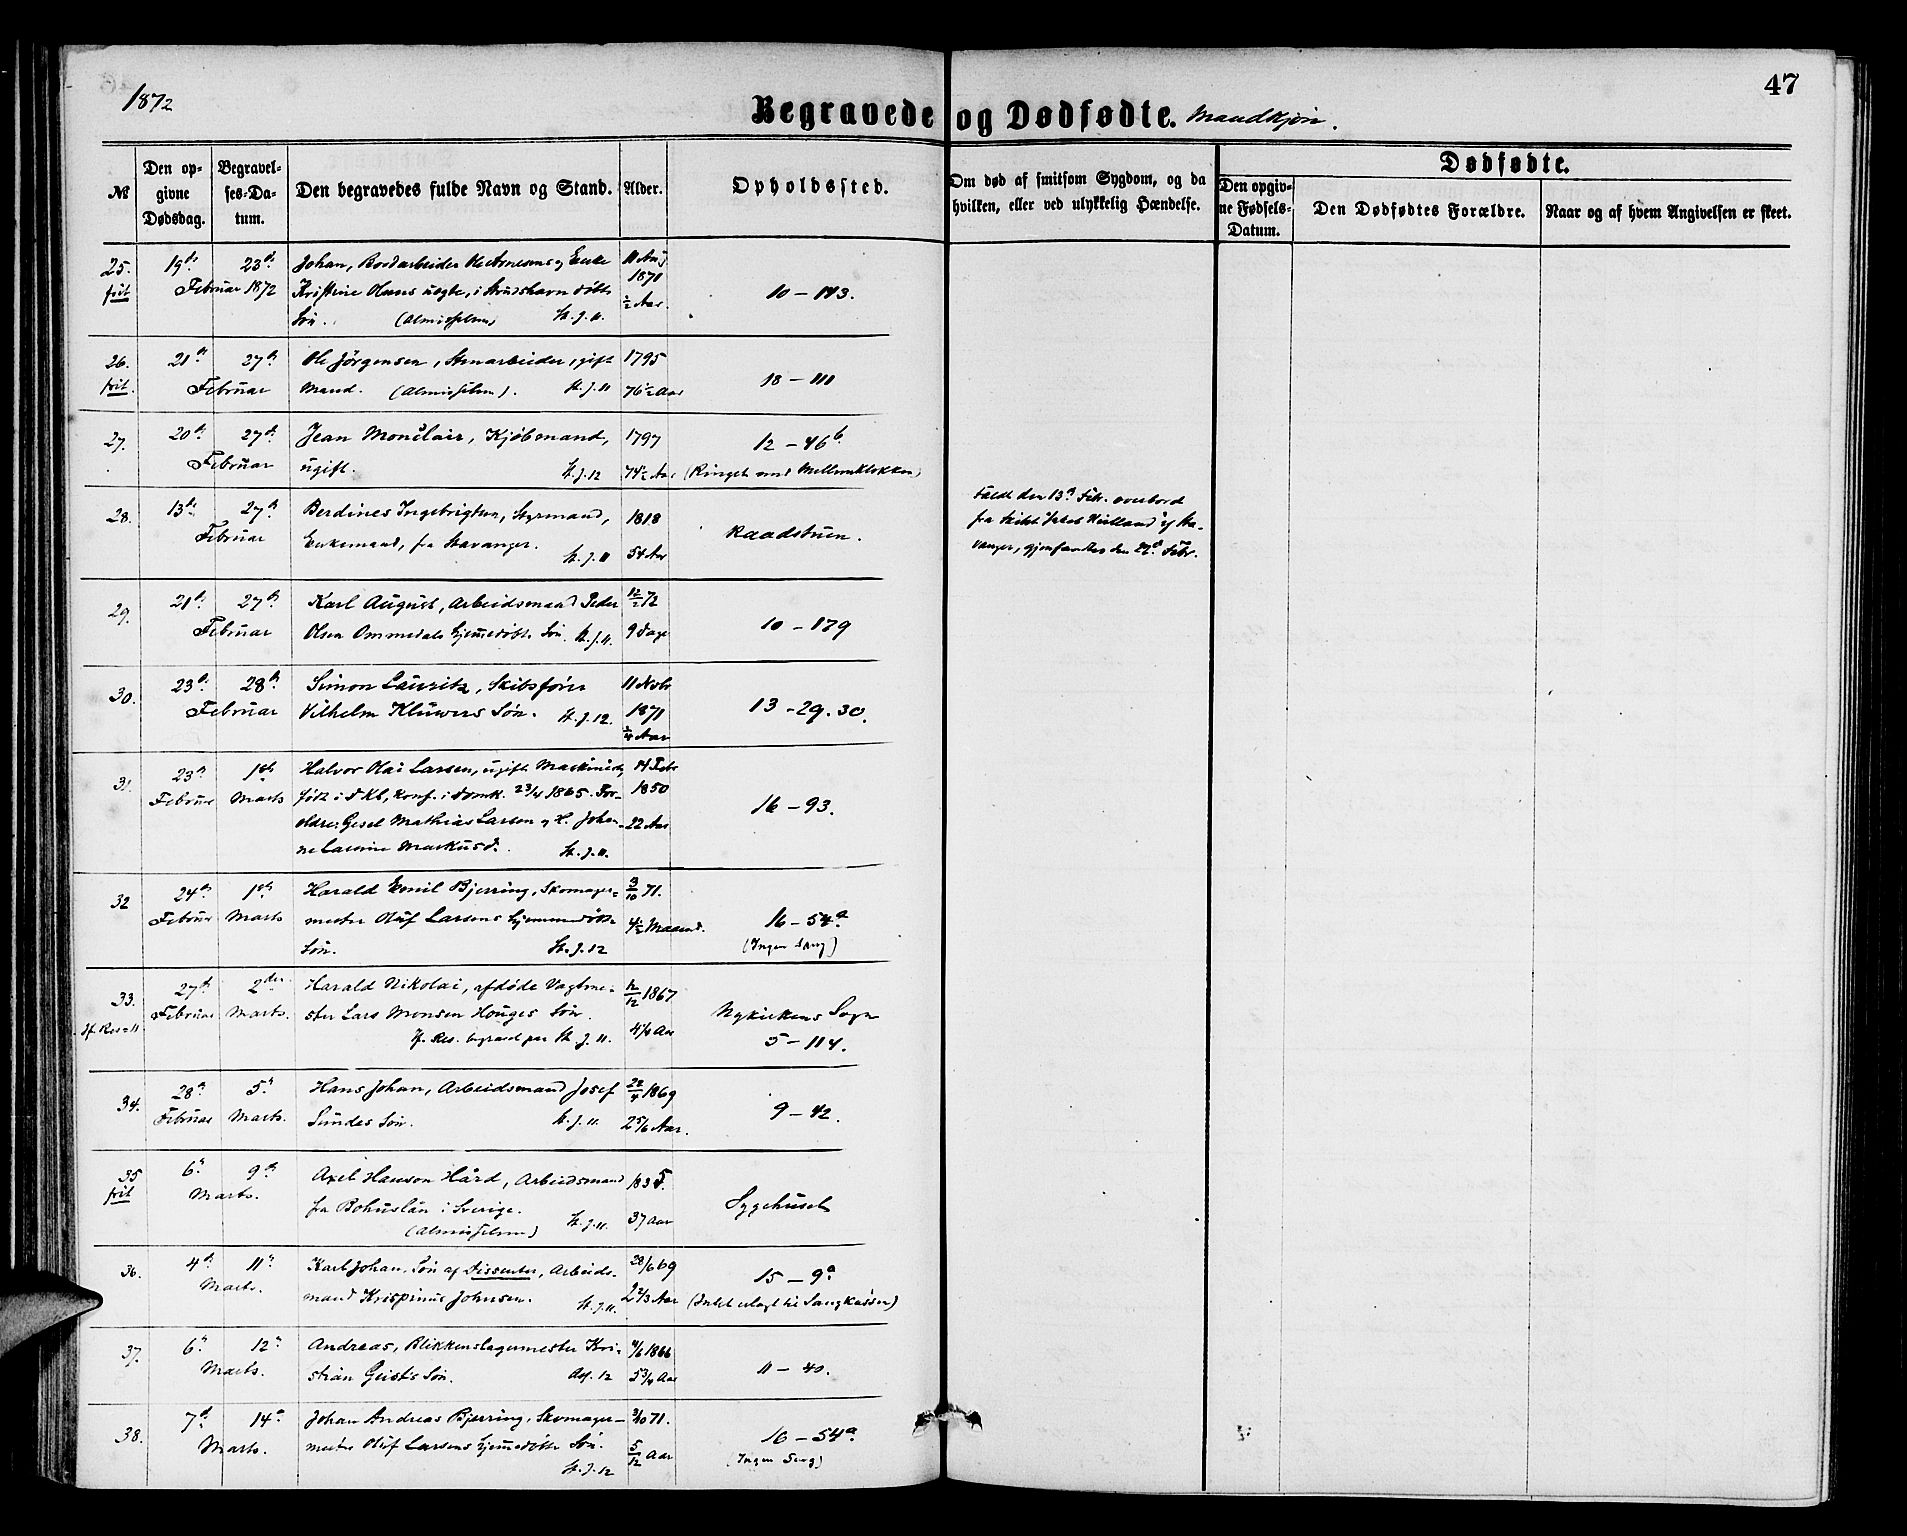 1872
47
Begravede og Dødfødte. Mandkjøn.
№
Den opgivne Dødsdag.
Begravelses-Datum.
Den begravedes fulde Navn og Stand.
Alder.
Opholdssted.
Om død af smitsom Sygdom, og da hvilken, eller ved ulykkelig Hændelse.
Dødfødte.
Den opgivne Fødsels-Datum.
Den Dødfødtes Forældre.
Naar og af hvem Angivelsen er skeet.
25. 19de 23d Johan, Bordarbeider Ole Arnesens og Enke 11 Aug
frit Februar 1872 Kristine Olans uægte, i døbt 1871 10 – 143.
Søn. (Almisselem) St. J. 11. ½ Aar.
26. 21de 27de Ole Jørgensen, Stenarbeider, gift 1795
frit. Februar Mand. (Almisselem). St. J. 11 76½ Aar 18 – 111
27. 20de 27de Jean Monclair, Kjøbmand, 1797 12 – 46b
Februar ugift. St. J. 12 74½ Aar (Ringet med Mellemklokken)
28. 13de 27de Berdines Ingebrigtsen, Styrmand, 1818 Raadstuen. Faldt den 13de Febr. overbord
Februar Enkemand, fra Stavanger. St. J. 11 54 Aar fra Skibet Jakob Kielland af Sta-
vanger, gjenfandtes den 22de Febr.
29. 21de 27de Karl August, Arbeidsmand Peder 12/2 72
Februar Olsen Ommedals hjemmedøbte Søn. St. J. 11. 9 Dage 10 – 179
30. 23de 28de Simon Lauritz, Skibsfører 11 Novbr
Februar Vilhelm Kluwers Søn. St. J. 12. 1871 13 – 29. 30.
¼ Aar
31. 23de 1ste Halvor Olai Larsen, ugift Maskinist, 14 Febr
Februar Marts født i Dkb, konf. i Domk. 23/4 1865. For- 1850 16 – 93.
ældre: Gesel Mathias Larsen og H. Johan- 22 Aar
ne Lavrine Markusd. St. J. 11.
32 24de 1ste Harald Emil Bjerring, Skomager- 3/10 71.
Februar Marts mester Oluf Larsens hjemmedøbte 4½ Maaned. 16 – 54a
Søn. St. J. 12 (Ingen Sang)
33. 27de 2den Harald Nikolai, afdøde Vagtme- 12/12 1867
Februar Marts. ster Lars Monsen Houges Søn. Nykirkens Sogn
if. Res. 11 If. Res. begravet paa St. J. 11. 4¼ Aar 5 – 114.
34. 28de 5te Hans Johan, Arbeidsmand Josef 22/4 1869
Februar Marts. Sundes Søn. St. J. 11. 2 5/6 Aar. 9 – 42.
35 6te 9de Axel Hanson Hård, Arbeidsmand 1835.
frit Marts. fra Bohuslän i Sverige. Sygehuset
(Almisselem) St. J. 11. 37 Aar
36. 4de 11te Karl Johan, Søn af Dissenter, Arbeids- 28/6 69 15 – 9a
Marts. mand Krispinus Johnsen. St. J. 11. 2 2/3 Aar (Intet erlagt til Sangkassen)
37. 6te 12te Andreas, Blikkenslagermester Kri- 11/6 1866
Marts. stian Geists Søn. As. 12 5 3/4 Aar 11 – 40.
38. 7de 14de Johan Andreas Bjerring, Skomager- 3/10 71.
Marts. mester Oluf Larsens hjemmedøbte Søn. 5/12 Aar 16 – 54a
St. J. 12 (Ingen Sang)